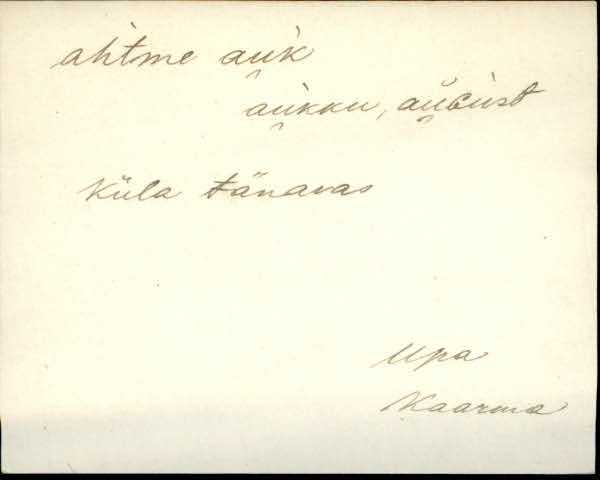 ahtme au̯k
au̯kku, au̯Gust
küla tänavas
Upa
Kaarma